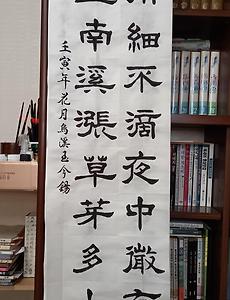 細不滴夜中微有
南溪漲草芽多
壬寅年花月烏溪玉今錫